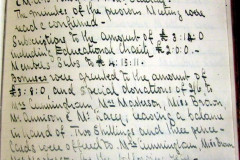 The minutes of the previous Meeting were
read & confirmed.
Subscriptions to the amount of £ 3.14.0
Educational Charity £ 2.0.0.
Members' Subs to £ 4.15.11.
Bonuses were granted to the amount of
£ 3.8.0, and special donations of 2/6 to
Mrs Cunningham, Mrs Brown,
& Mrs Lacey, leaving a balance
in hand of Two Shillings and three pence.
were offered to Mrs Cunningham, Mrs Brown